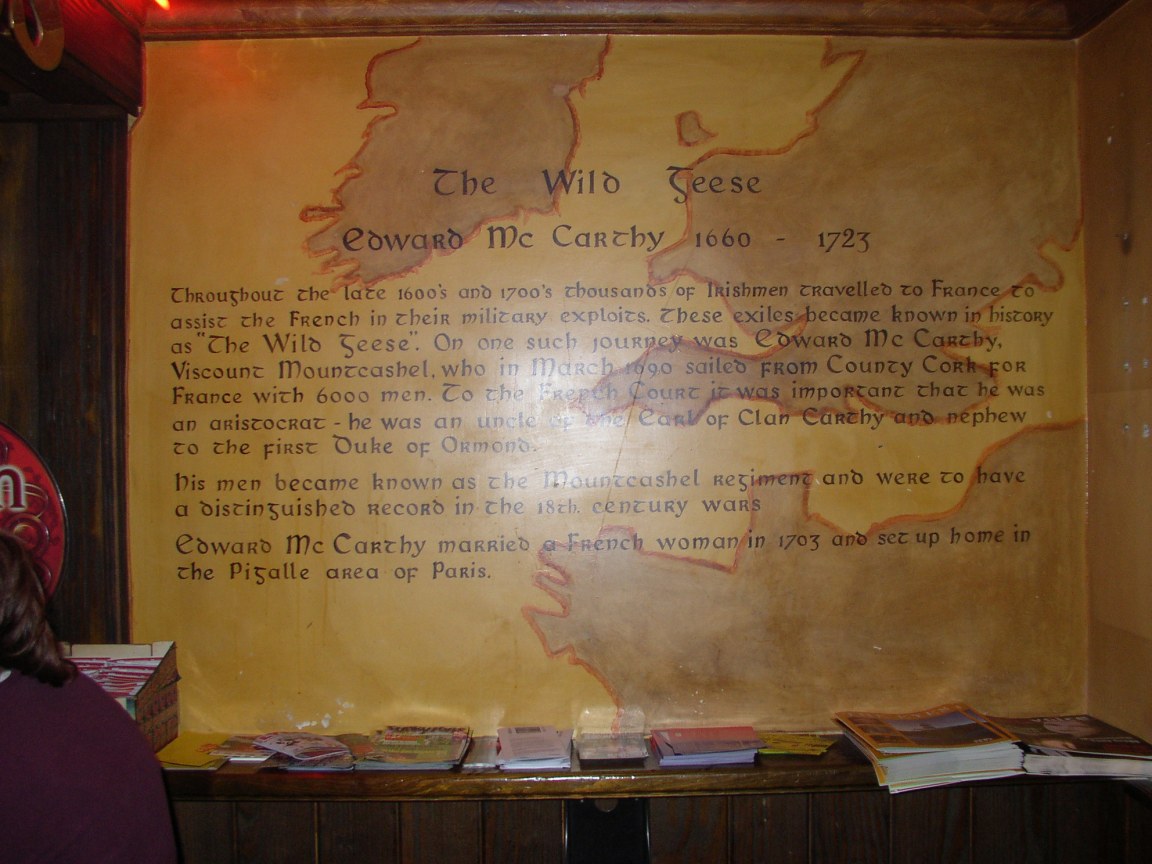 The Wild Geese
Edward Mc Carthy 1660 - 1723
Throughout the late 1600's and 1700's thousands of Irishmen travelled to France to
assist the French in their military exploits. These exiles became known in history
as "The Wild Geese". On one such journey was Edward Mc Carthy,
Viscount Mountcashel, who in March 1690 sailed from County Cork for
France with 6000 men. To the French Court it was important that he was
an aristocrat - he was an uncle of the Earl of Clan Carthy and nephew
to the first Duke of Ormond.
His men became known as the Mountcashel regiment and were to have
a distinguished record in the 18th. century wars
Edward Mc Carthy married a French woman in 1703 and set up home in
the Pigalle area of Paris.